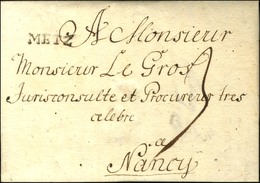 METZ A Monsieur
Monsieur Le Gros
Jurisconsulte et Procureur tres
celebre
a
Nancy